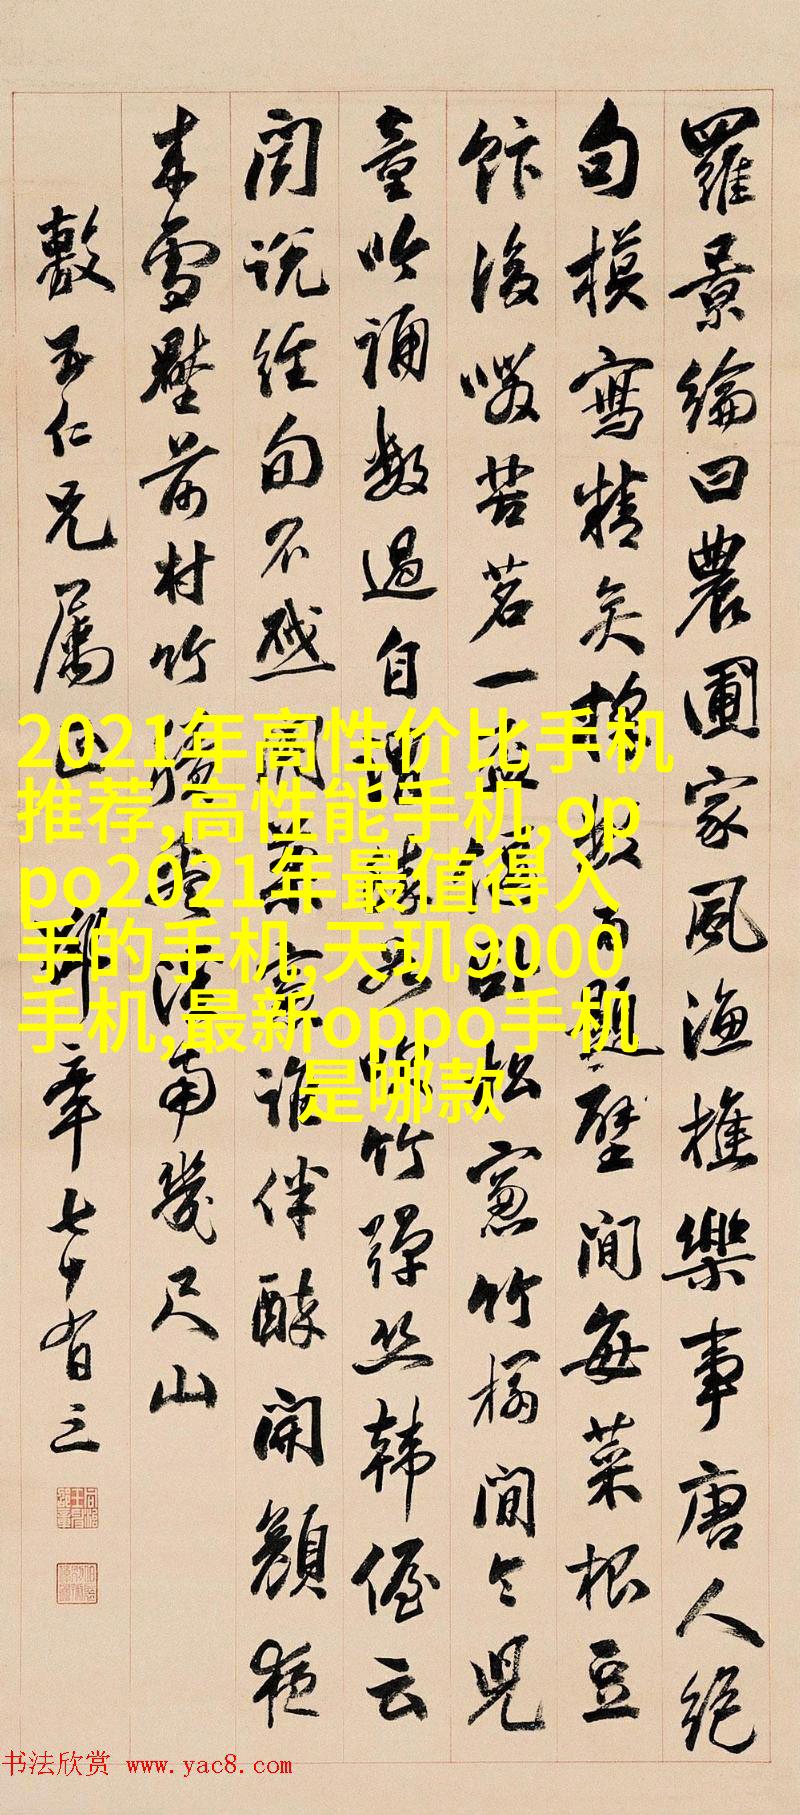 羅景綸曰農圃家風漁樵樂事唐人絕
句模寫精矣 題壁間每菜根豆
飯後啜苦茗一 松窗竹榻間令兒
童吟誦數過自謂 竹彈絲韓偓云
聞說經旬不啟關 誰伴醉開顏夜
來雪壓前村竹 溪南幾尺山
敷五仁兄屬 年七十有三
2021年高性价比手机
推荐,高性能手机,op
po2021年最值得入
手的手机,天玑9000
手机,最新oppo手机
是哪款
书法欣赏 www.yac8.com